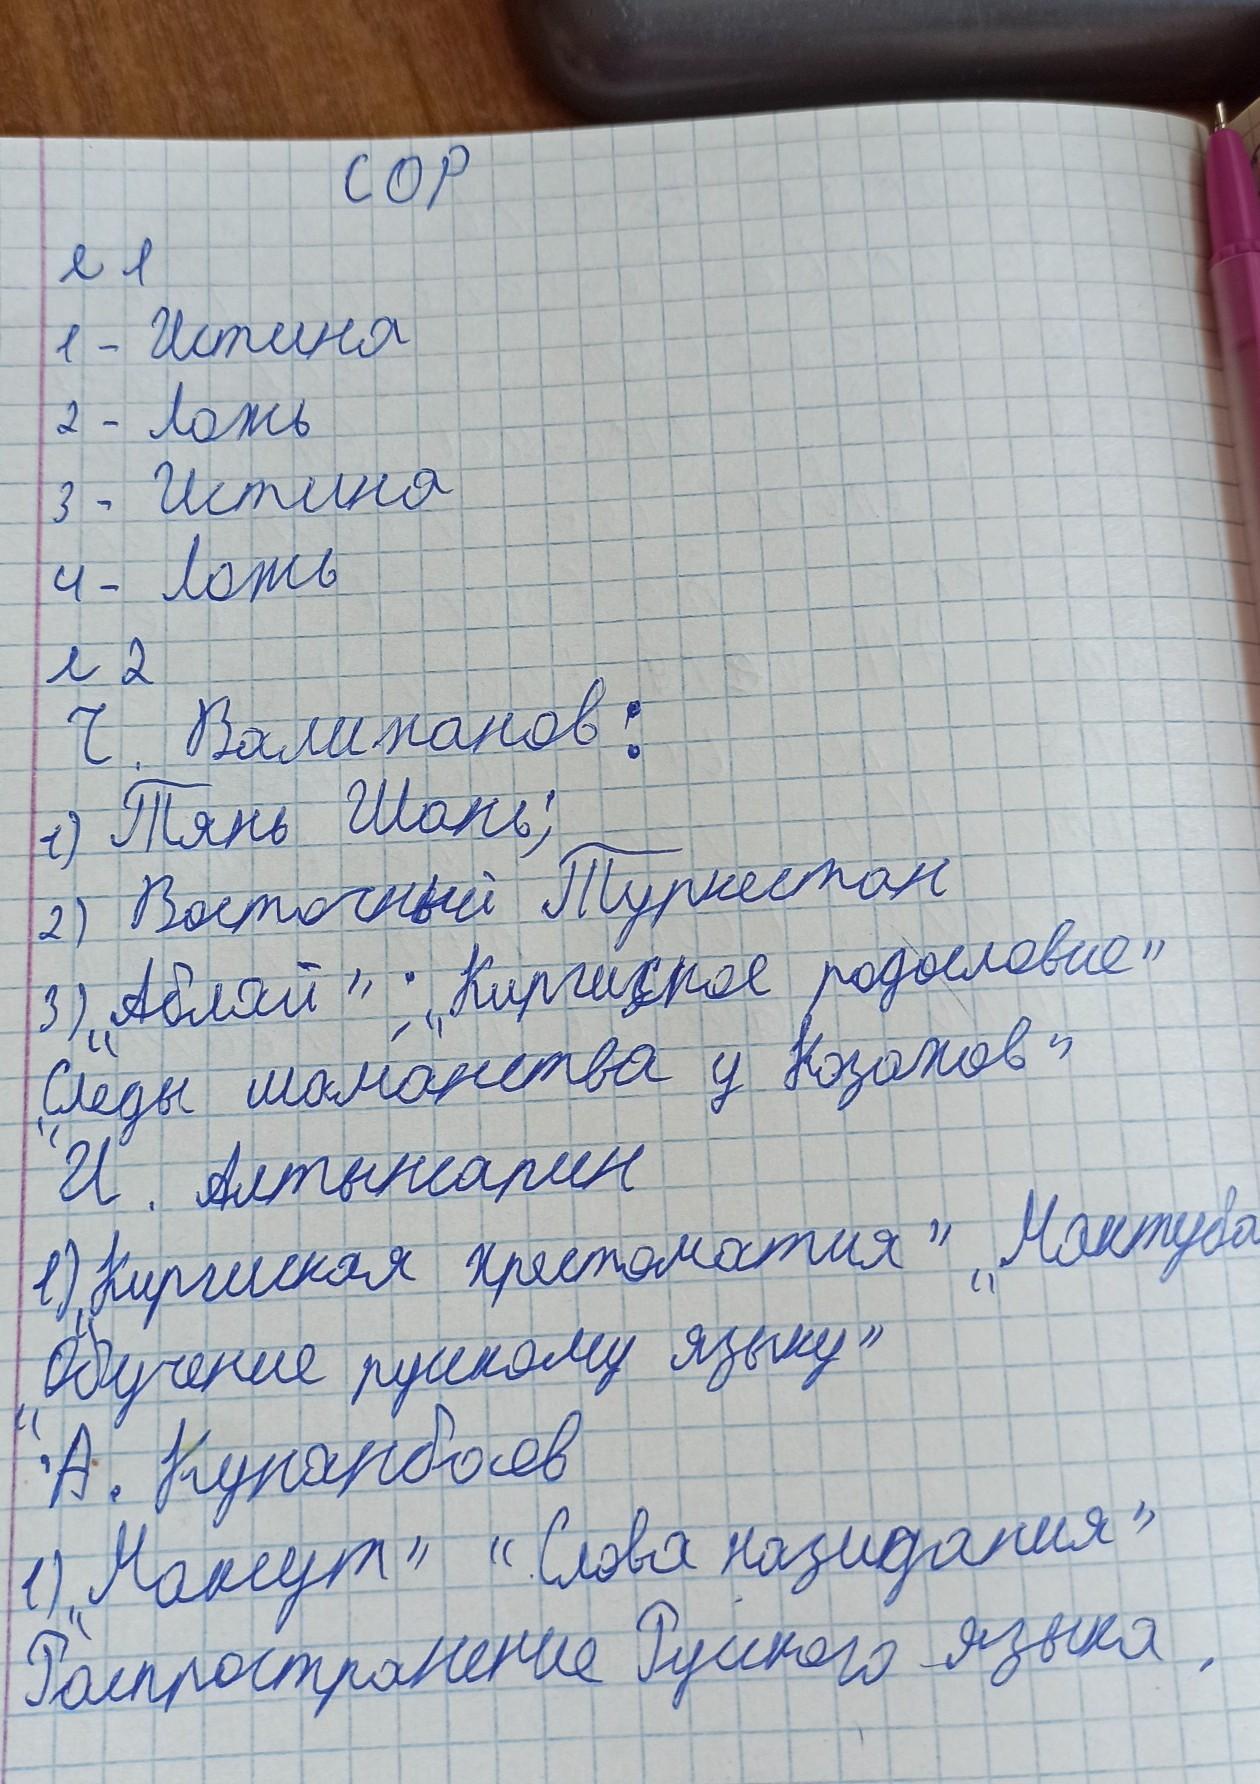 СОР
№ 1
1 - Истина
2 - Ложь
3 - Истина
4 - Ложь
№ 2
Ч. Валиханов:
1) Тянь Шань;
2) Восточный Туркестан
3) „Аблай"; „Киргизкое родословие"
„Следы шаманства у Казахов"
И. Алтынсарин
1) „Киргиская хрестоматия" „Мактуба
„Обучение рускому языку"
А. Кунанбаев
1) „Максут" "Слова назидания"
Распространение Руского языка,